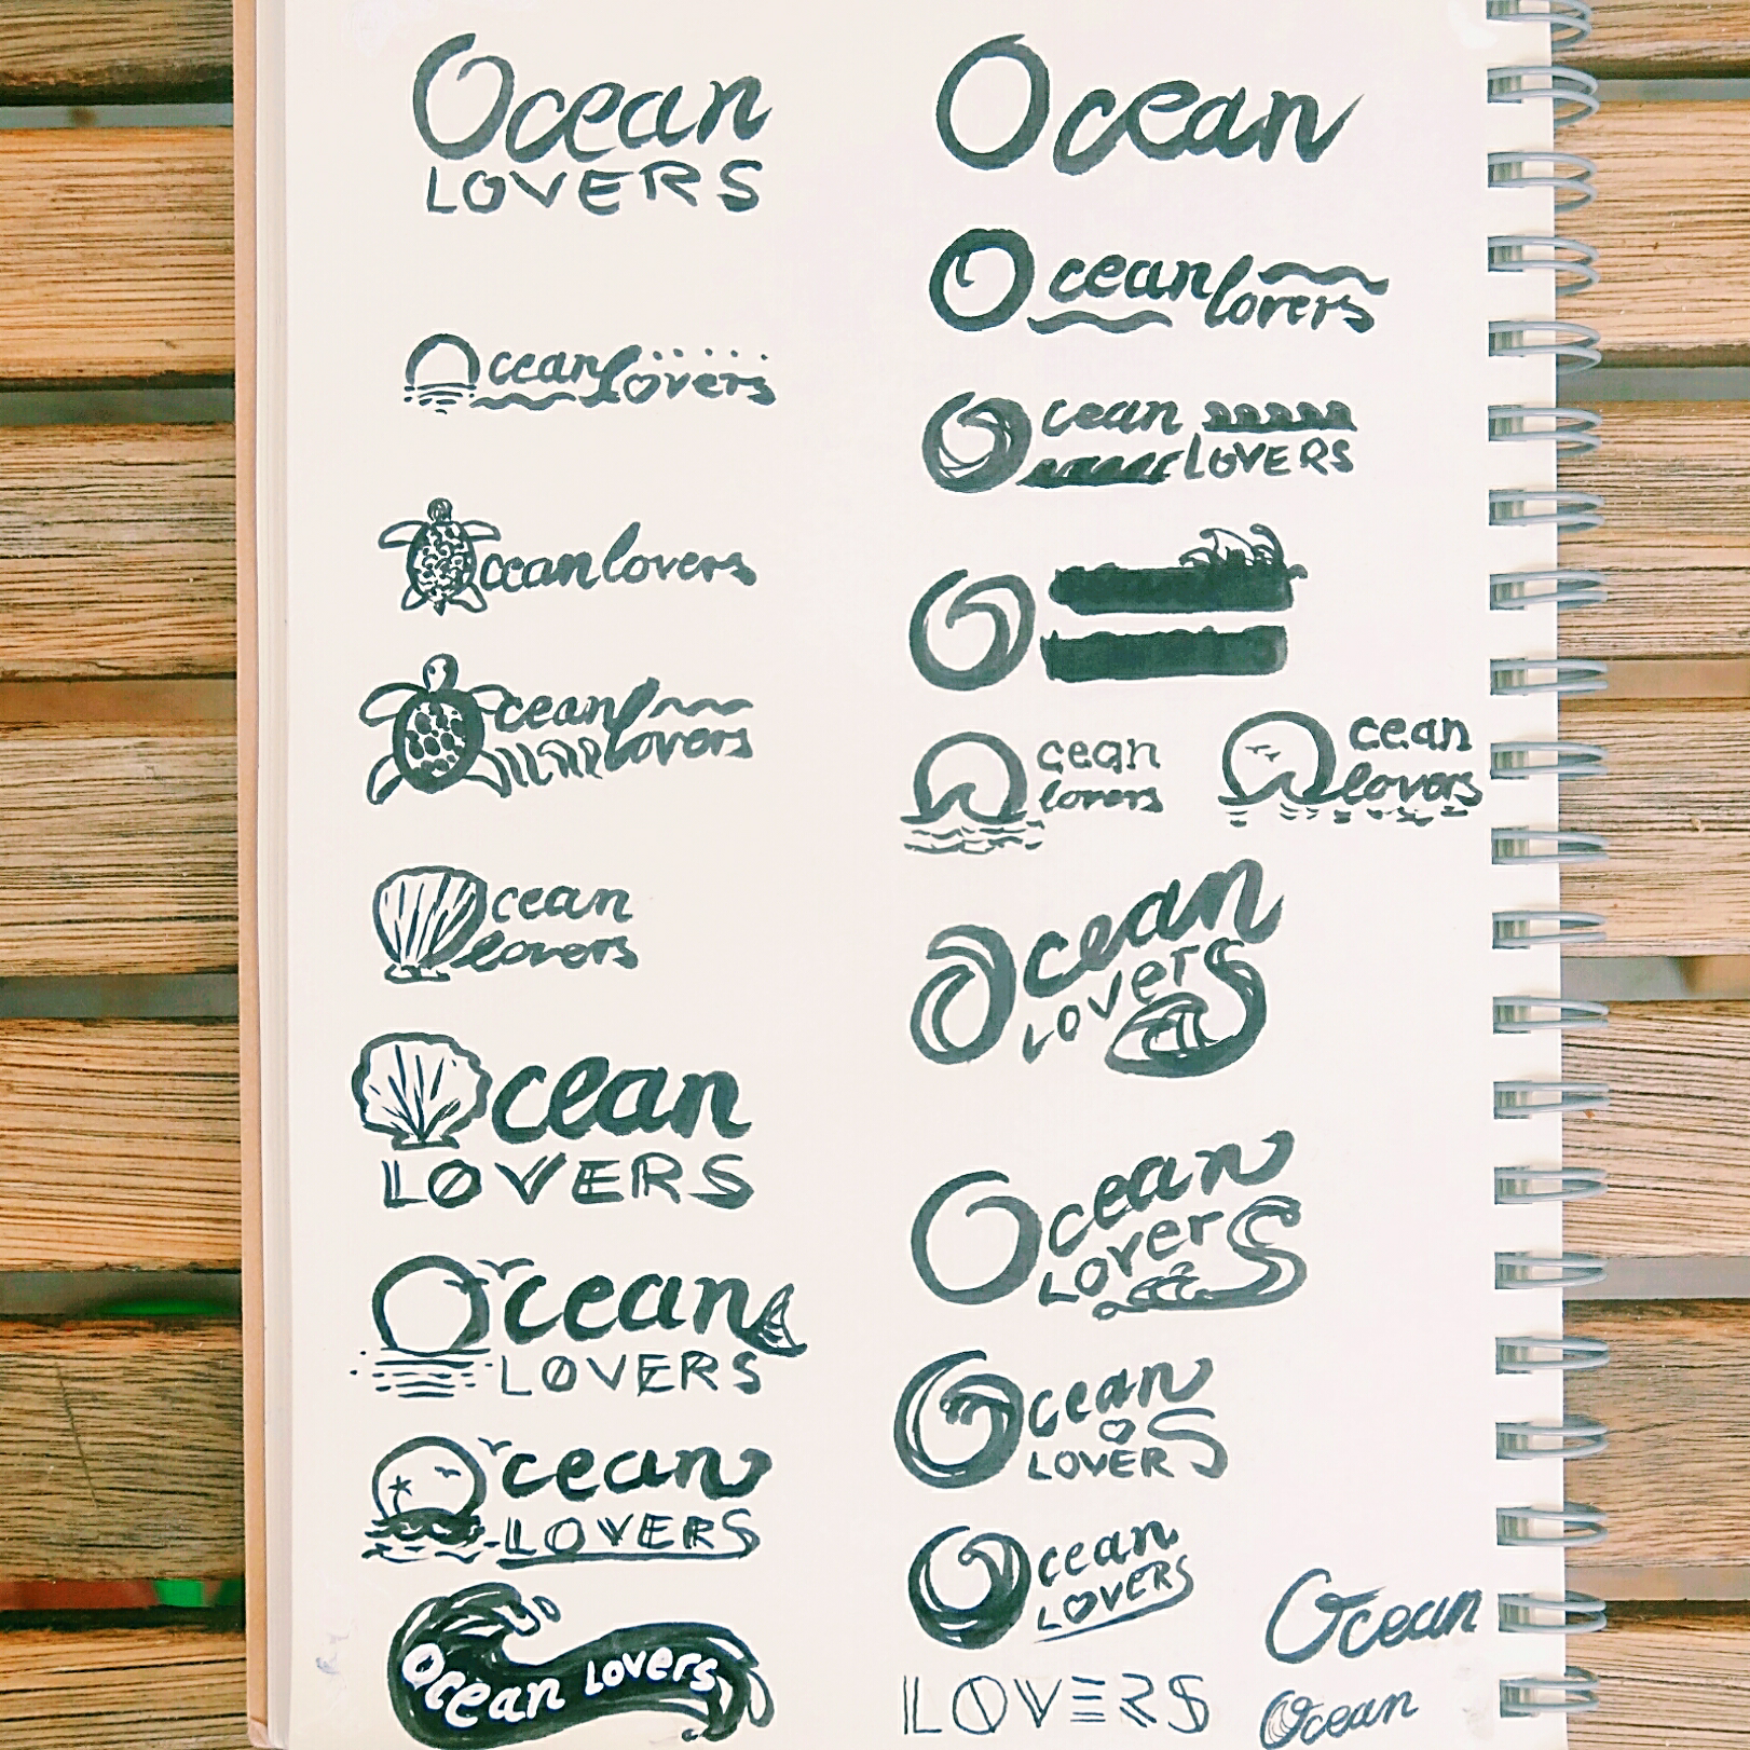 Ocean
LOVERS
Ocean lovers
cean lovers
cean lovers
cean
lovers
cean
LOVERS
Ocean
LOVERS
Ocean
LOVERS
Ocean Lovers
Ocean
Ocean lovers
Ocean
LOVERS
O
Ocean
lovers
Ocean
lovers
Ocean
LOVerS
Ocean
LOVerS
Ocean
LOVERS
Ocean
LOVERS
LOVERS
Ocean
Ocean